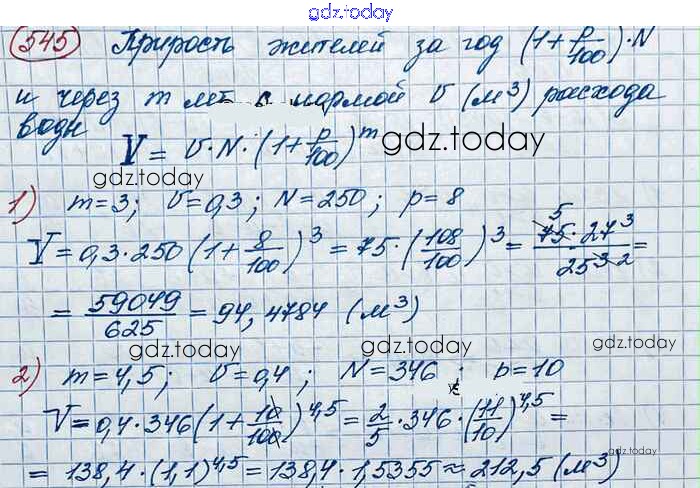 gdz.today
545 Прирость жителей за год (1+p/100)·N
и через m лет с нормой υ (м³) расхода
воды
V = υ·N·(1+p/100)^m gdz.today
gdz.today
1) m=3; υ=0,3; N=250; p=8
V=0,3·250(1+8/100)³ = 75·(108/100)³ = 75·27³/25³ =
5
2
= 59049/625 = 94,4784 (м³)
gdz.today gdz.today
2) m=4,5; υ=0,4; N=346; p=10
V=0,4·346(1+10/100)^4,5 = 2/5·346·(11/10)^4,5 =
gdz.today
= 138,4·(1,1)^4,5 = 138,4·1,5355 ≈ 212,5 (м³)
gdz.today